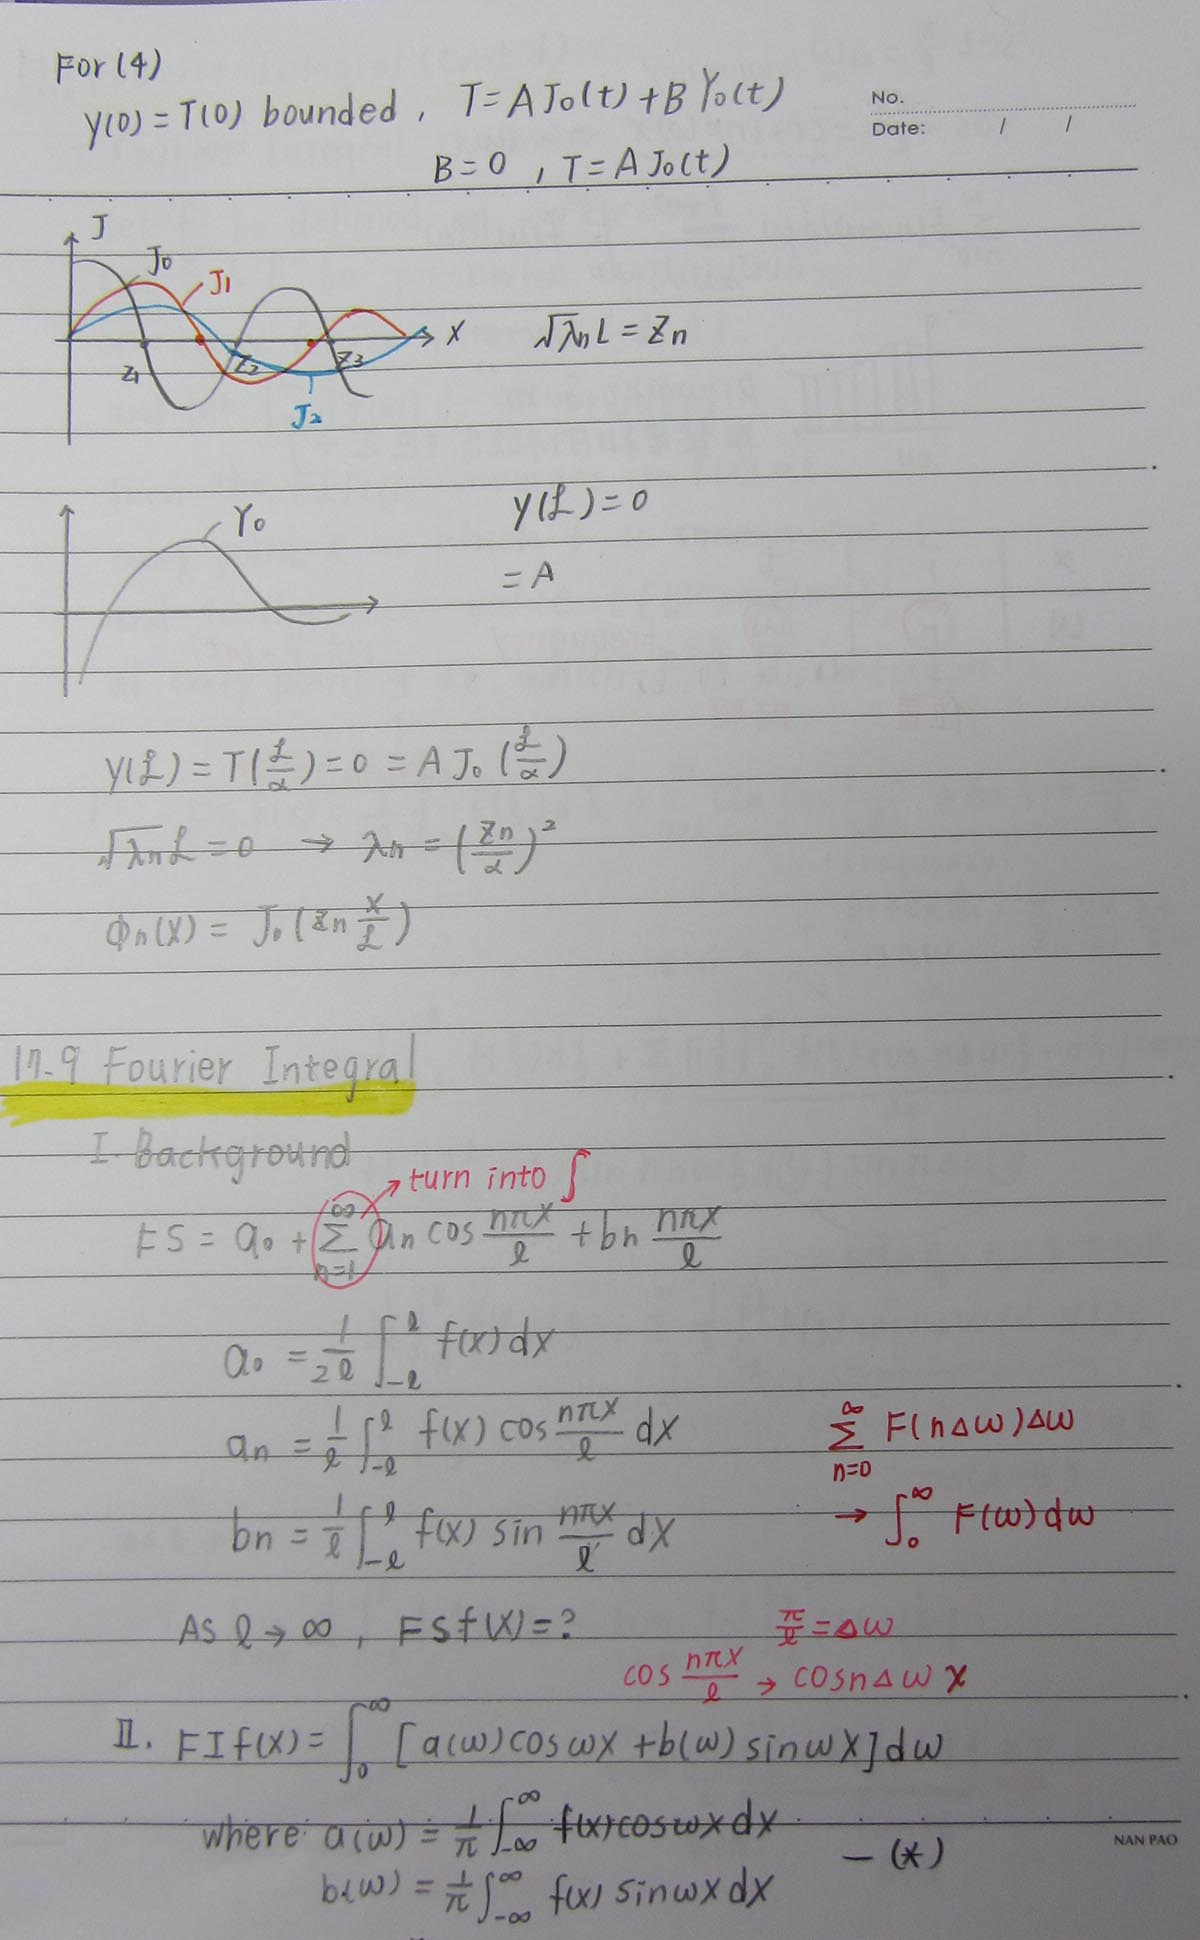 For (4)
y(0) = T(0) bounded , T = A J₀(t) + B Y₀(t)
No.
Date: / /
B = 0 , T = A J₀(t)
J
J₀
J₁
X
√λₙ L = Zₙ
Z₁ Z₂ Z₃
J₂
Y₀
y(ℒ) = 0
= A
y(ℒ) = T(ℒ/α) = 0 = A J₀ (ℒ/α)
√λₙ ℒ = 0 → λₙ = (Zₙ/α)²
Φₙ(x) = J₀ (Zₙ x/ℒ)
17-9 Fourier Integral
I. Background
turn into ∫
FS = a₀ + Σ_{n=1}^{∞} aₙ cos nπx/ℓ + bₙ nπx/ℓ
a₀ = 1/2ℓ ∫_{-ℓ}^{ℓ} f(x) dx
aₙ = 1/ℓ ∫_{-ℓ}^{ℓ} f(x) cos nπx/ℓ dx
Σ_{n=0}^{∞} F(nΔω)Δω
bₙ = 1/ℓ ∫_{-ℓ}^{ℓ} f(x) sin nπx/ℓ dx
→ ∫_0^∞ F(ω) dω
As ℓ → ∞ , FS f(x) = ?
π/ℓ = Δω
cos nπx/ℓ → cosnΔω x
II. FI f(x) = ∫_0^∞ [a(ω)cosωx + b(ω) sinωx] dω
where a(ω) = 1/π ∫_{-∞}^{∞} f(x) cosωx dx
— (*)
NAN PAO
b(ω) = 1/π ∫_{-∞}^{∞} f(x) sinωx dx